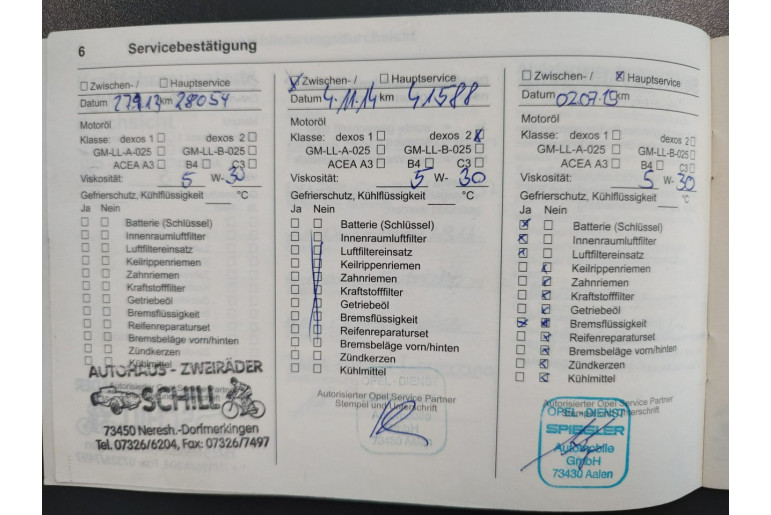 6 Servicebestätigung
☐ Zwischen- / ☐ Hauptservice
Datum 27.9.13 km 28054
Motoröl
Klasse: dexos 1 ☐ dexos 2 ☐
GM-LL-A-025 ☐ GM-LL-B-025 ☐
ACEA A3 ☐ B4 ☐ C3 ☐
Viskosität: 5 W- 30
Gefrierschutz, Kühlflüssigkeit °C
Ja Nein
☐ ☐ Batterie (Schlüssel)
☐ ☐ Innenraumluftfilter
☐ ☐ Luftfiltereinsatz
☐ ☐ Keilrippenriemen
☐ ☐ Zahnriemen
☐ ☐ Kraftstofffilter
☐ ☐ Getriebeöl
☐ ☐ Bremsflüssigkeit
☐ ☐ Reifenreparaturset
☐ ☐ Bremsbeläge vorn/hinten
☐ ☐ Zündkerzen
☐ ☐ Kühlmittel
AUTOHAUS - ZWEIRÄDER
Autorisierter Opel Service Partner
SCHILL
73450 Neresh.-Dorfmerkingen
Tel. 07326/6204, Fax: 07326/7497
☒ Zwischen- / ☐ Hauptservice
Datum 4.11.14 km 41588
Motoröl
Klasse: dexos 1 ☐ dexos 2 ☒
GM-LL-A-025 ☐ GM-LL-B-025 ☐
ACEA A3 ☐ B4 ☐ C3 ☐
Viskosität: 5 W- 30
Gefrierschutz, Kühlflüssigkeit °C
Ja Nein
☐ ☐ Batterie (Schlüssel)
☐ ☐ Innenraumluftfilter
☐ ☐ Luftfiltereinsatz
☐ ☐ Keilrippenriemen
☐ ☐ Zahnriemen
☐ ☐ Kraftstofffilter
☐ ☐ Getriebeöl
☐ ☐ Bremsflüssigkeit
☐ ☐ Reifenreparaturset
☐ ☐ Bremsbeläge vorn/hinten
☐ ☐ Zündkerzen
☐ ☐ Kühlmittel
OPEL-DIENST
Autorisierter Opel Service Partner
Stempel und Unterschrift
GmbH
73430 Aalen
☐ Zwischen- / ☒ Hauptservice
Datum 02.07.15 km
Motoröl
Klasse: dexos 1 ☐ dexos 2 ☐
GM-LL-A-025 ☐ GM-LL-B-025 ☐
ACEA A3 ☐ B4 ☐ C3 ☐
Viskosität: 5 W- 30
Gefrierschutz, Kühlflüssigkeit °C
Ja Nein
☒ ☐ Batterie (Schlüssel)
☒ ☐ Innenraumluftfilter
☒ ☐ Luftfiltereinsatz
☐ ☒ Keilrippenriemen
☐ ☒ Zahnriemen
☐ ☒ Kraftstofffilter
☐ ☒ Getriebeöl
☒ ☒ Bremsflüssigkeit
☐ ☒ Reifenreparaturset
☐ ☒ Bremsbeläge vorn/hinten
☐ ☒ Zündkerzen
☐ ☒ Kühlmittel
Autorisierter Opel Service Partner
OPEL-DIENST
SPIEGLER
Automobile
GmbH
73430 Aalen